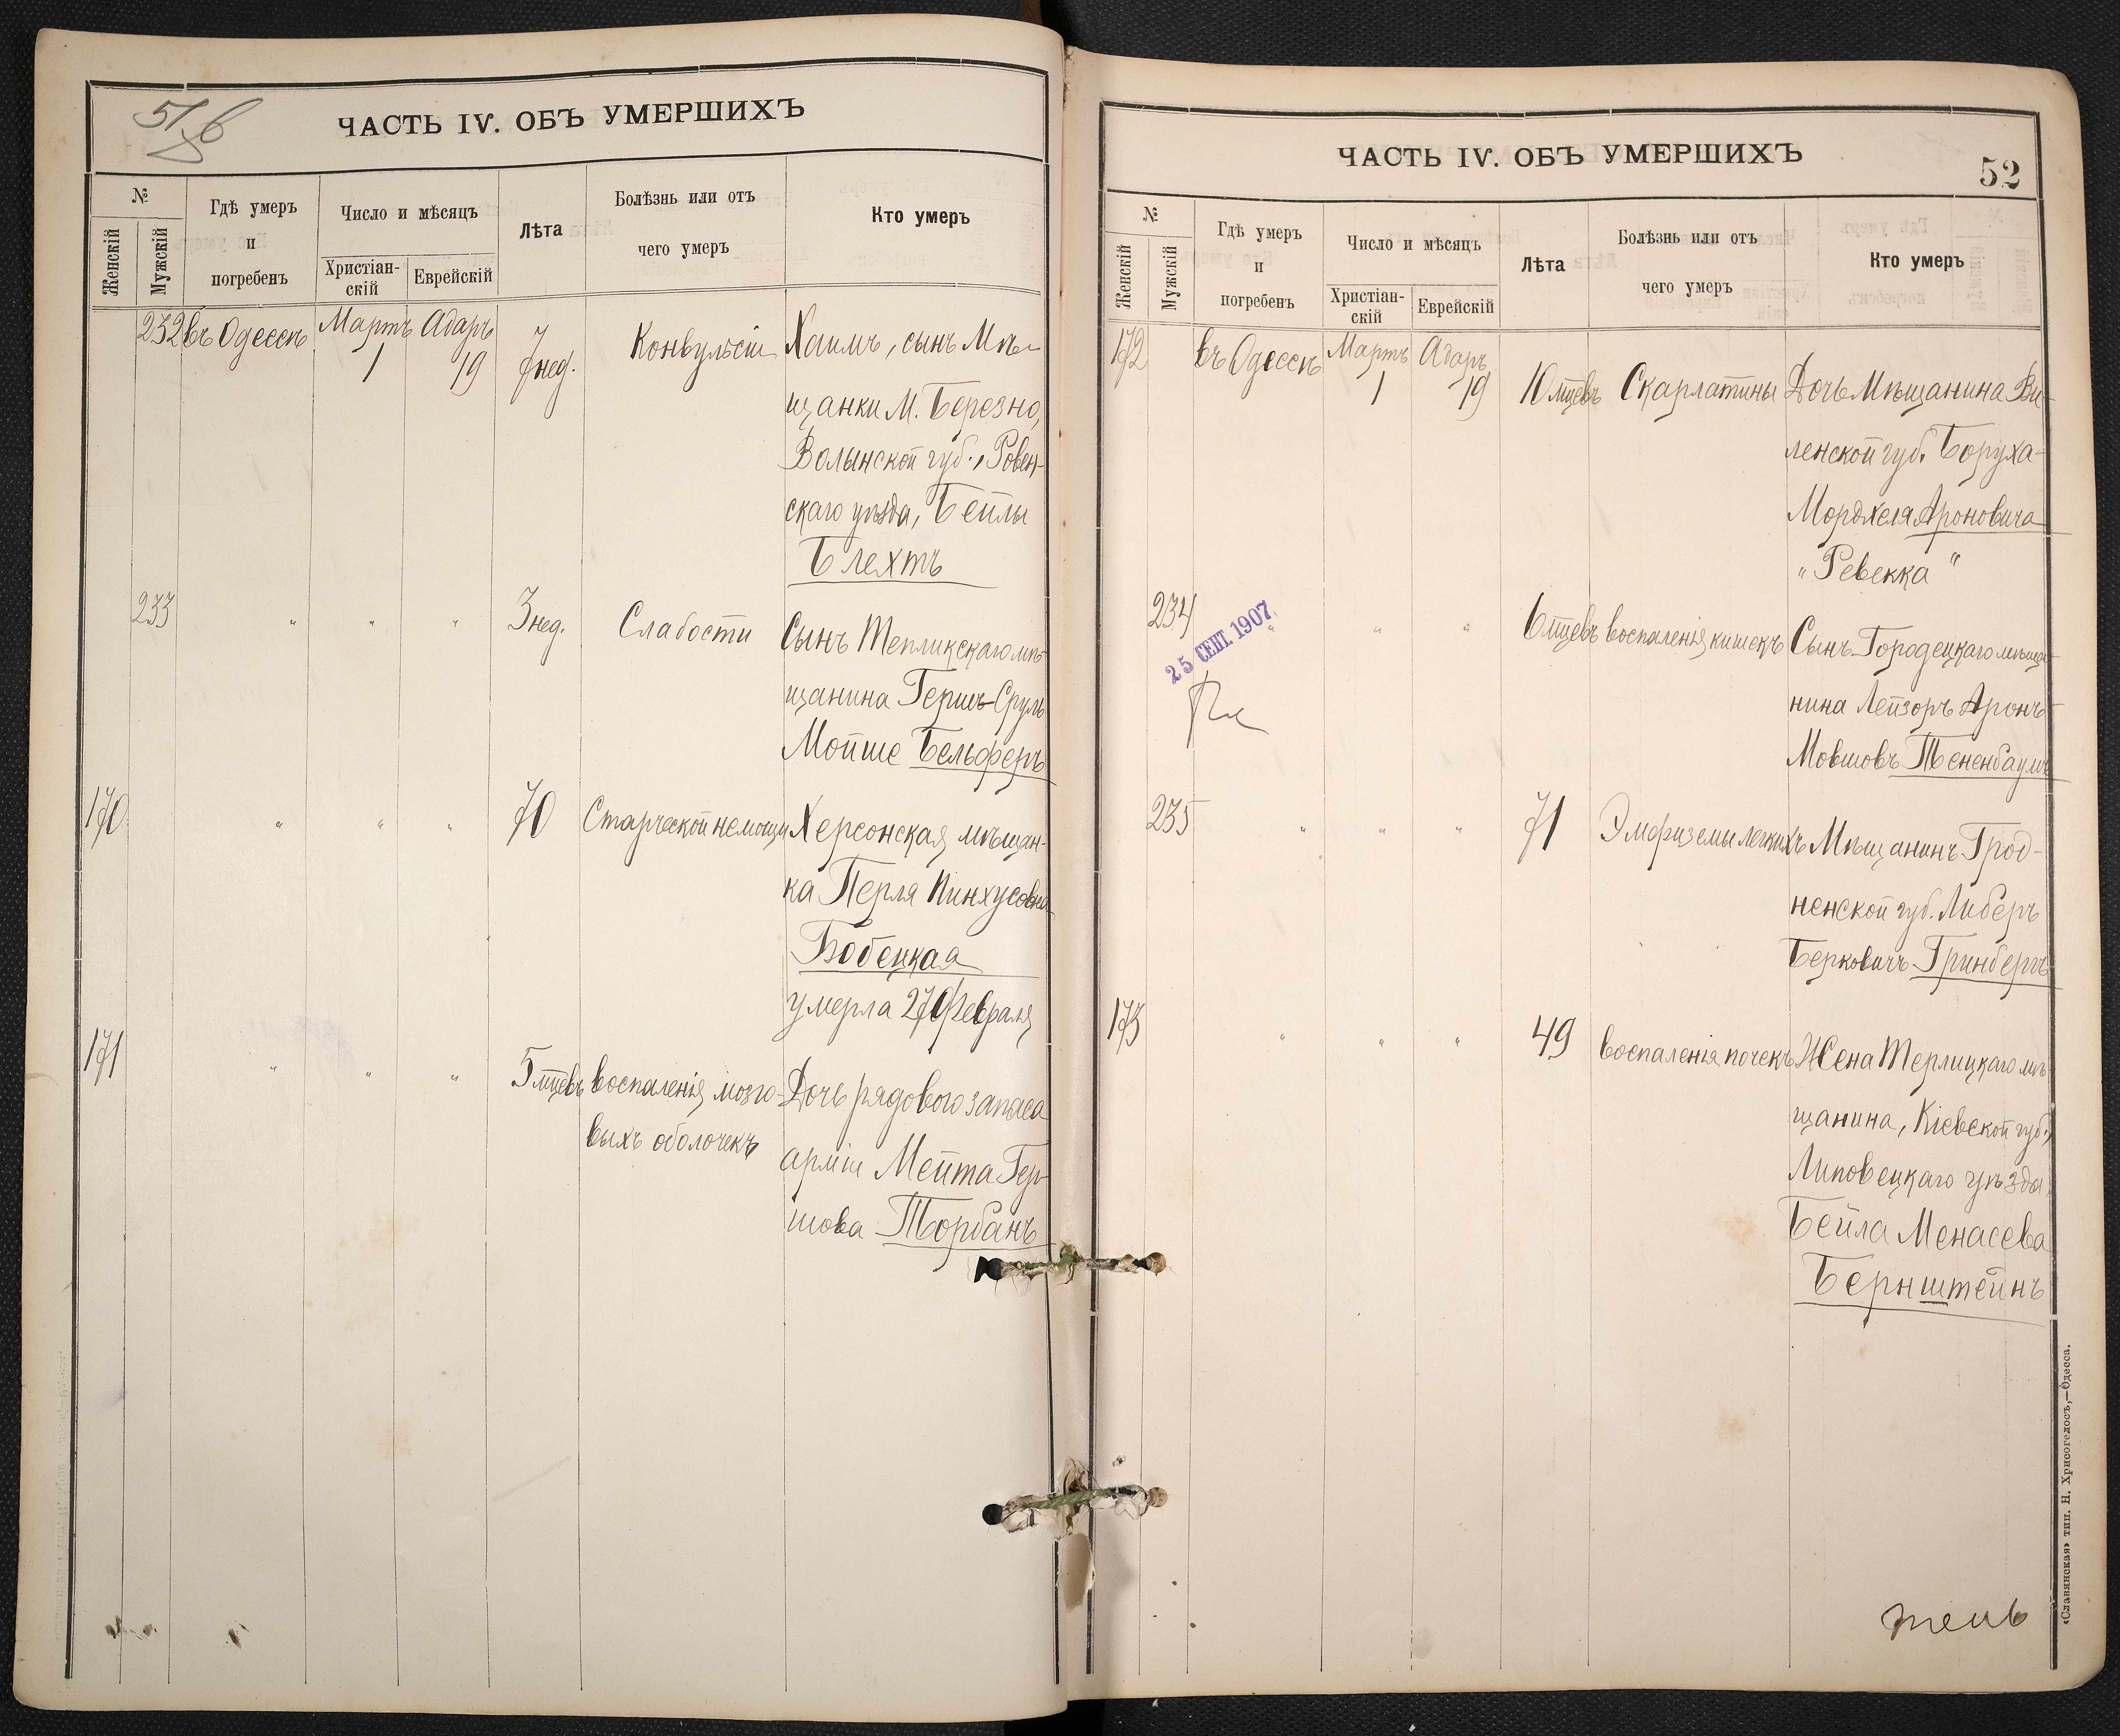 51 б
ЧАСТЬ IV. ОБЪ УМЕРШИХЪ
№
Женскій
Мужскій
Гдѣ умеръ
и
погребенъ
Число и мѣсяцъ
Христіан-
скій
Еврейскій
Лѣта
Болѣзнь или отъ
чего умеръ
Кто умеръ
232 въ Одессѣ Мартъ 1 Адаръ 19 7 нед. Конвульсіи Хаимъ, сынъ Мѣ-
щанки М. Березно,
Волынской губ., Ровен-
скаго уѣзда, Бейлы
Блехтъ
233 " " " 3 нед. Слабости Сынъ Тепликскаго мѣ-
щанина Гершъ-Сруль
Мойше Бельферъ
170 " " " 70 Старческой немощи Херсонская мѣщан-
ка Перля Пинхусовна
Бобецкая
умерла 27 Февраля
171 " " " 5 мцевъ воспаленія мозго- Дочь рядового запаса
выхъ оболочекъ
арміи Мейта Гер-
шова Торбанъ
ЧАСТЬ IV. ОБЪ УМЕРШИХЪ
52
№
Женскій
Мужскій
Гдѣ умеръ
и
погребенъ
Число и мѣсяцъ
Христіан-
скій
Еврейскій
Лѣта
Болѣзнь или отъ
чего умеръ
Кто умеръ
172 въ Одессѣ Мартъ 1 Адаръ 19 10 мцевъ Скарлатины Дочь Мѣщанина Ви-
ленской губ. Боруха-
Мордхеля Ароновича
"Ревекка"
234 " " " 6 мцевъ воспаленія кишекъ Сынъ Городецкаго мѣща-
нина Лейзоръ Аронъ
Мовшовъ Тененбаумъ
25 СЕНТ. 1907
235 " " " 71 Эмфиземы легкихъ Мѣщанинъ Грод-
ненской губ. Либеръ
Берковичъ Гринбергъ
173 " " " 49 воспаленія почекъ Жена Терлицкаго мѣ-
щанина, Кіевской губ.,
Липовецкаго уѣзда,
Бейла Менасева
Бернштейнъ
«Славянская» тип. Н. Хрисогелосъ,—Одесса.